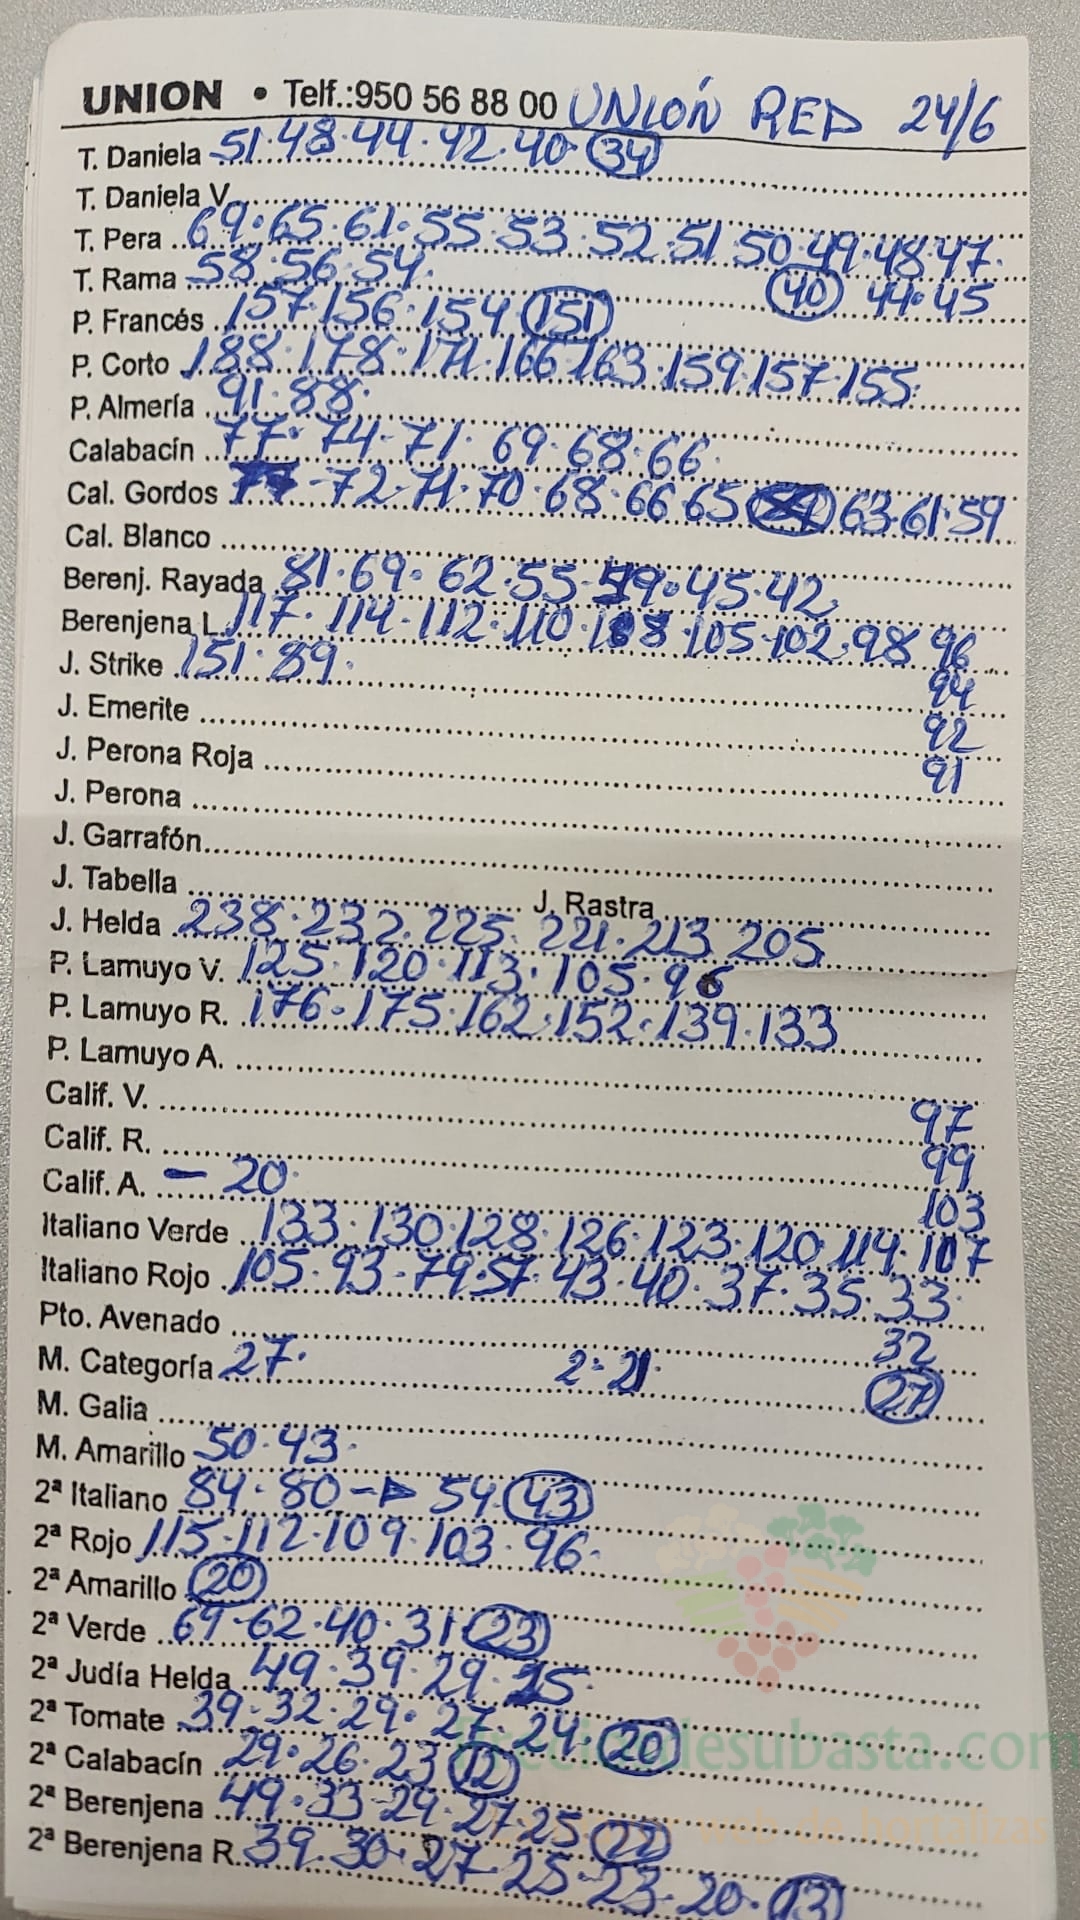 UNION • Telf.:950 56 88 00 UNIÓN RED 24/6
T. Daniela 51·48·44·42·40 34
T. Daniela V.
T. Pera 69·65·61·55·53·52·51·50·49·48·47·
T. Rama 58·56·54· 40 44·45
P. Francés 157·156·154 151
P. Corto 188·178·171·166·163·159·157·155
P. Almería 91·88·
Calabacín 77·74-71· 69·68·66·
Cal. Gordos -72-71·70·68·66 65 63·61·59
Cal. Blanco
Berenj. Rayada 81·69· 62·55· 45·42
Berenjena L. 117·114·112·110·108·105·102·98 96
J. Strike 151·89· 94
J. Emerite 92
J. Perona Roja 91
J. Perona
J. Garrafón
J. Tabella J. Rastra
J. Helda 238·232·225·221·213 205
P. Lamuyo V. 125·120·113·105·96
P. Lamuyo R. 176·175·162·152·139·133
P. Lamuyo A.
Calif. V. 97
Calif. R. 99
Calif. A. - 20· 103
Italiano Verde 133·130·128·126·123·120·114·107
Italiano Rojo 105·93·79·57·43·40·37·35·33
Pto. Avenado 32
M. Categoría 27· 2·21· 27
M. Galia
M. Amarillo 50·43·
2ª Italiano 84·80-> 54 43
2ª Rojo 115·112·109·103·96·
2ª Amarillo 20
2ª Verde 69-62·40·31 23
2ª Judía Helda 49·39·29·25·
2ª Tomate 39·32·29·27·24· 20
2ª Calabacín 29·26·23 12
2ª Berenjena 49·33·29·27·25 22
2ª Berenjena R. 39·30·27·25·23·20· 13
desubasta.com
web de hortalizas